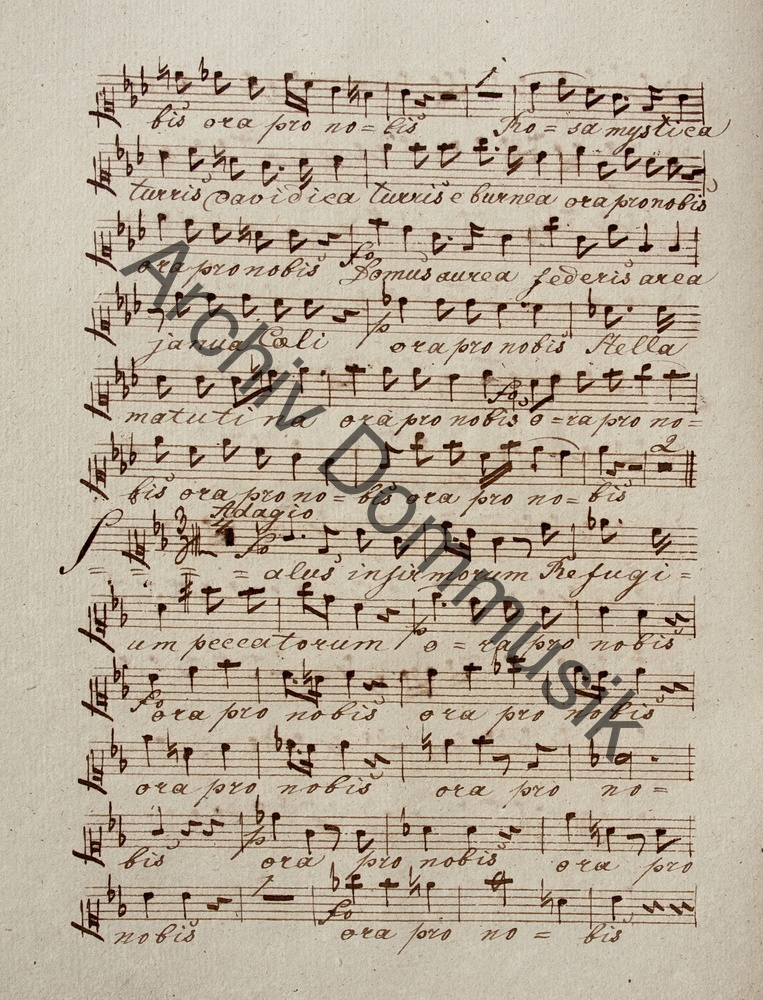 1
bis ora pro no= bis Ro= sa mystica
turris Davidica turris eburnea ora pro nobis
ora pro nobis fo Domus aurea federis arca
janua Cœli p ora pro nobis Stella
matutina ora pro nobis fo o=ra pro no=
2
bis ora pro no= bis ora pro no= bis
3 4 Adagio
S = = = = fo alus infirmorum Refugi=
um peccatorum p o= ra pro nobis
fo ora pro nobis ora pro nobis
ora pro nobis ora pro no=
bis p ora pro nobis ora pro
1
nobis fo ora pro no= bis
Archiv Dommusik